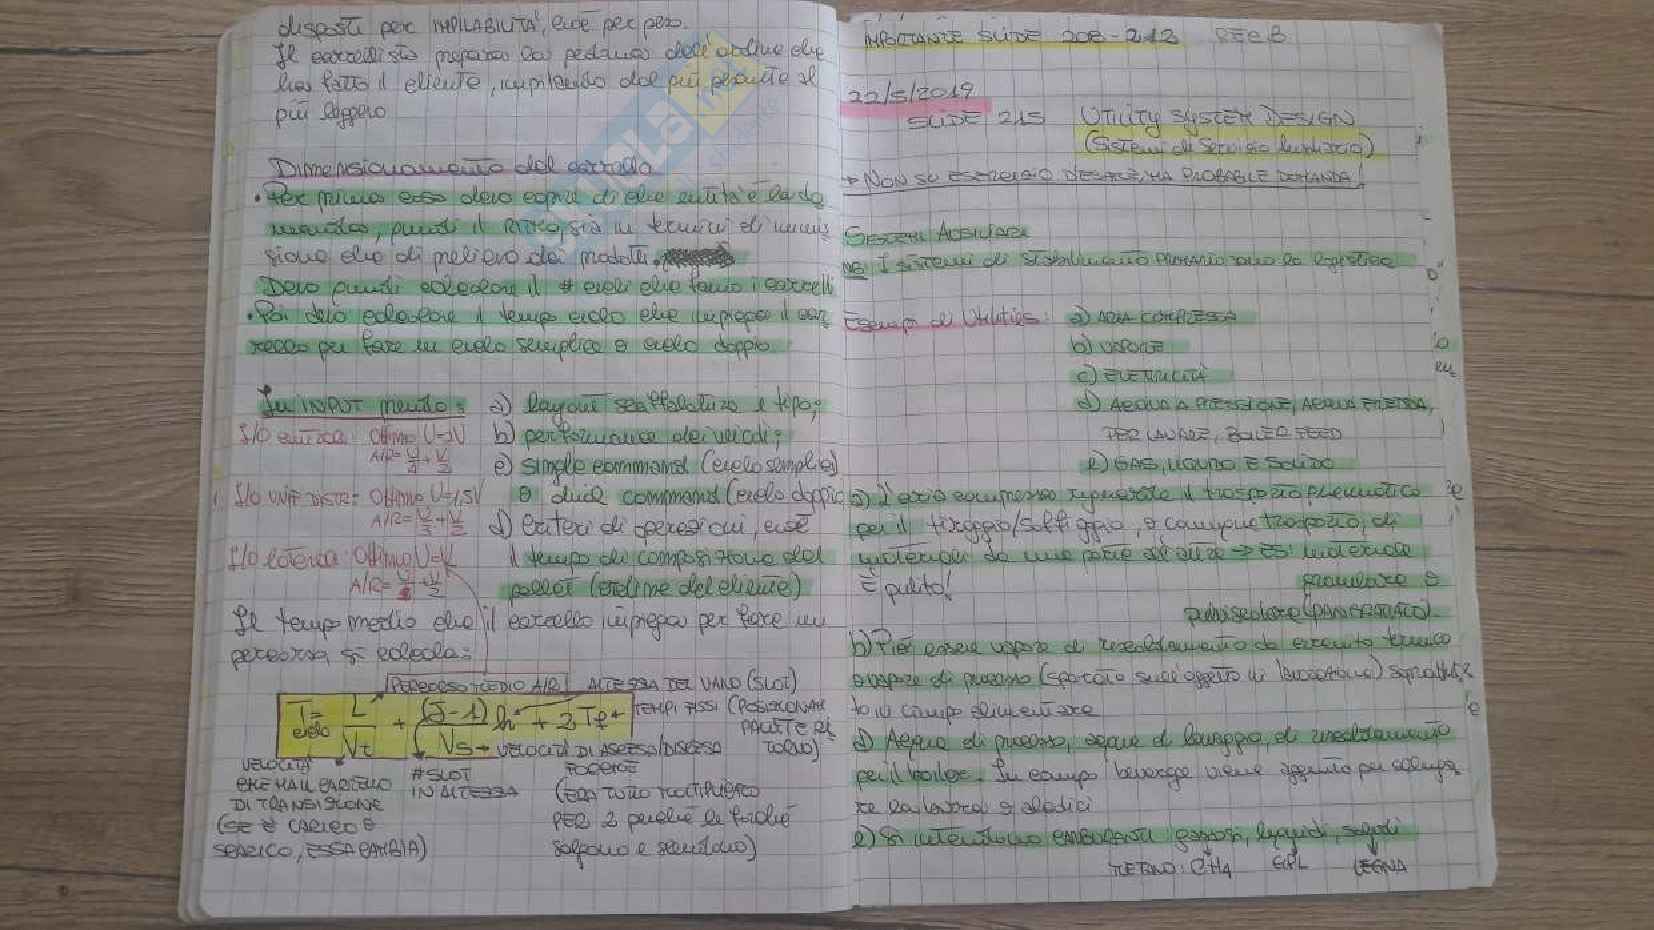 disposti per IMPILABILITÀ, cioè per peso.
Il carrellista prepara la pedana dell'ordine che
ha fatto il cliente, impilando dal più pesante al
più leggero
Dimensionamento del carrello
• Per prima cosa devo capire di che entità è la do
manda, quindi il ritmo, sia in termini di immis
sione che di prelievo dei prodotti.
Devo quindi calcolare il # cicli che fanno i carrelli
• Poi devo calcolare il tempo ciclo che impiega il car
rello per fare un ciclo semplice o ciclo doppio
In INPUT metto: a) layout scaffalatura e tipo;
I/O centrale: Ottimo U=2V b) performance dei veicoli;
A/R= U/4 + V/2
c) single command (ciclo semplice)
I/O UNIF DISTR: Ottimo U=1,5V o dual command (ciclo doppio)
A/R= U/3 + V/2
d) criteri di operazioni, cioè
I/O laterale: Ottimo U=V il tempo di composizione del
A/R= + V/2
pallet (ordine del cliente)
Il tempo medio che il carrello impiega per fare un
percorso si calcola:
PERCORSO MEDIO A/R ALTEZZA DEL VANO (SLOT)
T ciclo = L/Vt + (J-1)/Vs h + 2Tf TEMPI FISSI (POSIZIONAM
Vs → VELOCITÀ DI ASCESA/DISCESA FORCHE
VELOCITÀ
CHE HA IL CARRELLO
DI TRANSIZIONE
(SE È CARICO O
SCARICO, ESSA CAMBIA)
#SLOT
IN ALTEZZA
(ERA TUTTO MOLTIPLICATO
PER 2 perché le forche
salgono e scendono)
IMPORTANTE SLIDE 208-213
22/5/2019
SLIDE 215 UTILITY SYSTEM DESIGN
(Sistemi di Servizio Ausiliario)
→ NON SU ESERCIZIO D'ESAME, MA PROBABILE DOMANDA!
SISTEMI AUSILIARI
NB: I sistemi di stabilimento primario sono la logistica
Esempi di Utilities: a) ARIA COMPRESSA
b) VAPORE
c) ELETTRICITÀ
d) ACQUA A PRESSIONE, ACQUA FREDDA,
PER LAVARE, BOILER FEED
e) GAS, LIQUIDO E SOLIDO
a) l'aria compressa il trasporto pneumatico
per il tiraggio/soffiaggio, o comunque trasporto, di
materiali da una parte all'altra → ES: materiale
È pulito! granulare o
b) Può essere vapore di riscaldamento da circuito termico
o vapore di processo (sparato sull'oggetto in lavorazione) soprattut
to in campo alimentare
d) Acqua di processo, acqua di lavaggio, di riscaldamento
per il boiler. In campo beverage viene aggiunta per
e) Si intendono CARBURANTI gassosi, liquidi, solidi
METANO: CH4 GPL LEGNA